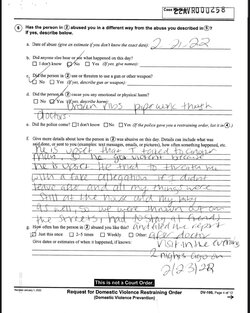 Case Number:
22AVRO00258
6 Has the person in 2 abused you in a different way from the abuse you described in 5?
If yes, describe below.
a. Date of abuse (give an estimate if you don't know the exact date): 2 21.22
b. Did anyone else hear or see what happened on this day?
I don't know No Yes (If yes, give names):
c. Did the person in 2 use or threaten to use a gun or other weapon?
No Yes (If yes, describe gun or weapon):
d. Did the person in 2 cause you any emotional or physical harm?
No Yes (If yes, describe harm):
Broken ribs
doctor.
e. Did the police come? I don't know No Yes (If the police gave you a restraining order, list it in 4)
f. Give more details about how the person in 2 was abusive on this day. Details can include what was
said, done, or sent to you (examples: text messages, emails, or pictures), how often something happened, etc.
He is upset that I talked to another
man. So he got violent because
he is upset He tried to threaten me
with a fake allegation if I didn't
leave also and all my things were
still at the house and my baby
as well, so we were thrown out on
the streets, had to stay at friends
g. How often has the person in 2 abused you this way? and filed the report
Just this once 2-5 times Weekly Other: after doctor
Give dates or estimates of when it happened, if known: visit in the evening
2 nights ago on
2/23/22
This is not a Court Order.
Revised January 1, 2022
Request for Domestic Violence Restraining Order
(Domestic Violence Prevention)
DV-100, Page 4 of 12